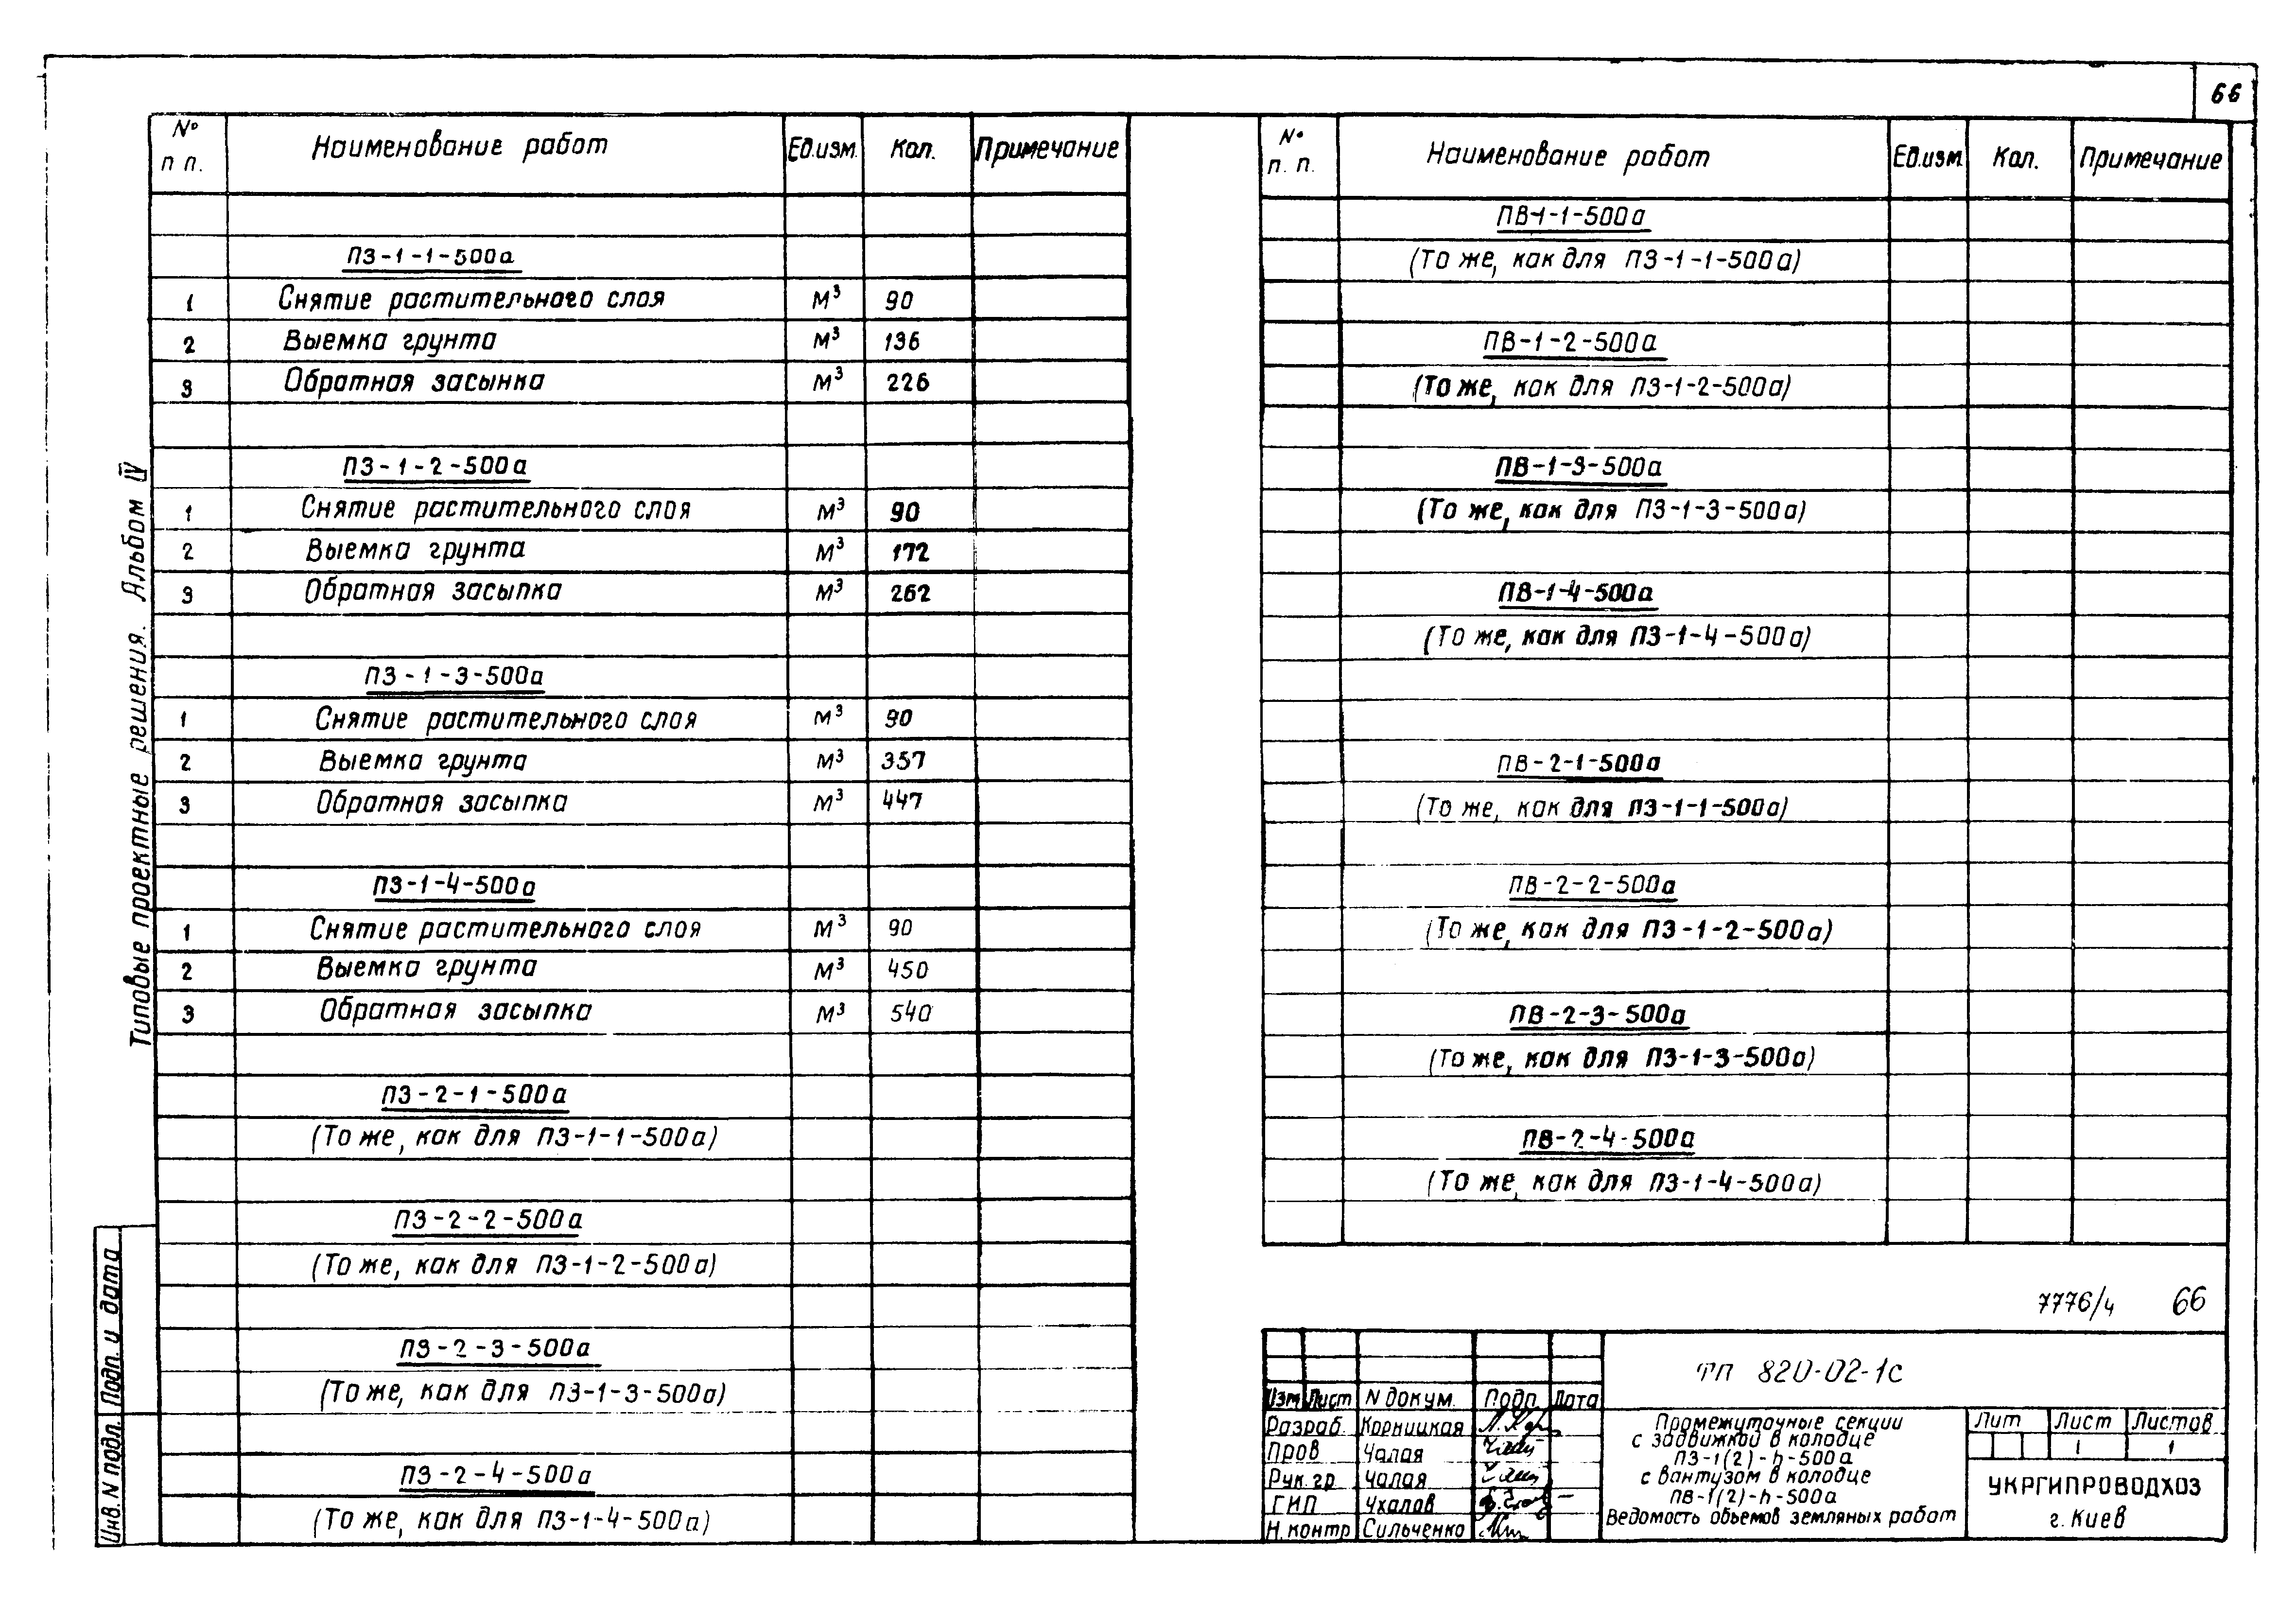 66
Типовые проектные решения. Альбом IV
Инв. N подл. Подп. и дата
№ п п. Наименование работ Ед.изм. Кол. Примечание
ПЗ-1-1-500а
1 Снятие растительного слоя м³ 90
2 Выемка грунта м³ 136
3 Обратная засынка м³ 226
ПЗ-1-2-500а
1 Снятие растительного слоя м³ 90
2 Выемка грунта м³ 172
3 Обратная засыпка м³ 262
ПЗ-1-3-500а
1 Снятие растительного слоя м³ 90
2 Выемка грунта м³ 357
3 Обратная засыпка м³ 447
ПЗ-1-4-500а
1 Снятие растительного слоя м³ 90
2 Выемка грунта м³ 450
3 Обратная засыпка м³ 540
ПЗ-2-1-500а
(То же, как для ПЗ-1-1-500а)
ПЗ-2-2-500а
(То же, как для ПЗ-1-2-500а)
ПЗ-2-3-500а
(То же, как для ПЗ-1-3-500а)
ПЗ-2-4-500а
(То же, как для ПЗ-1-4-500а)
№ п. п. Наименование работ Ед.изм Кол. Примечание
ПВ-1-1-500а
(То же, как для ПЗ-1-1-500а)
ПВ-1-2-500а
(То же, как для ПЗ-1-2-500а)
ПВ-1-3-500а
(То же, как для ПЗ-1-3-500а)
ПВ-1-4-500а
(То же, как для ПЗ-1-4-500а)
ПВ-2-1-500а
(То же, как для ПЗ-1-1-500а)
ПВ-2-2-500а
(То же, как для ПЗ-1-2-500а)
ПВ-2-3-500а
(То же, как для ПЗ-1-3-500а)
ПВ-2-4-500а
(То же, как для ПЗ-1-4-500а)
7776/4 66
ТП 820-02-1с
Изм Лист N докум. Подп. Дата
Разраб. Корницкая
Пров Чалая
Рук. гр. Чалая
ГИП Чхалав
Н. контр Сильченко
Промежуточные секции
с задвижкой в колодце
ПЗ-1(2)-h-500а
с вантузом в колодце
ПВ-1(2)-h-500а
Ведомость объемов земляных работ
Лит Лист Листов
1 1
УКРГИПРОВОДХОЗ
г. Киев